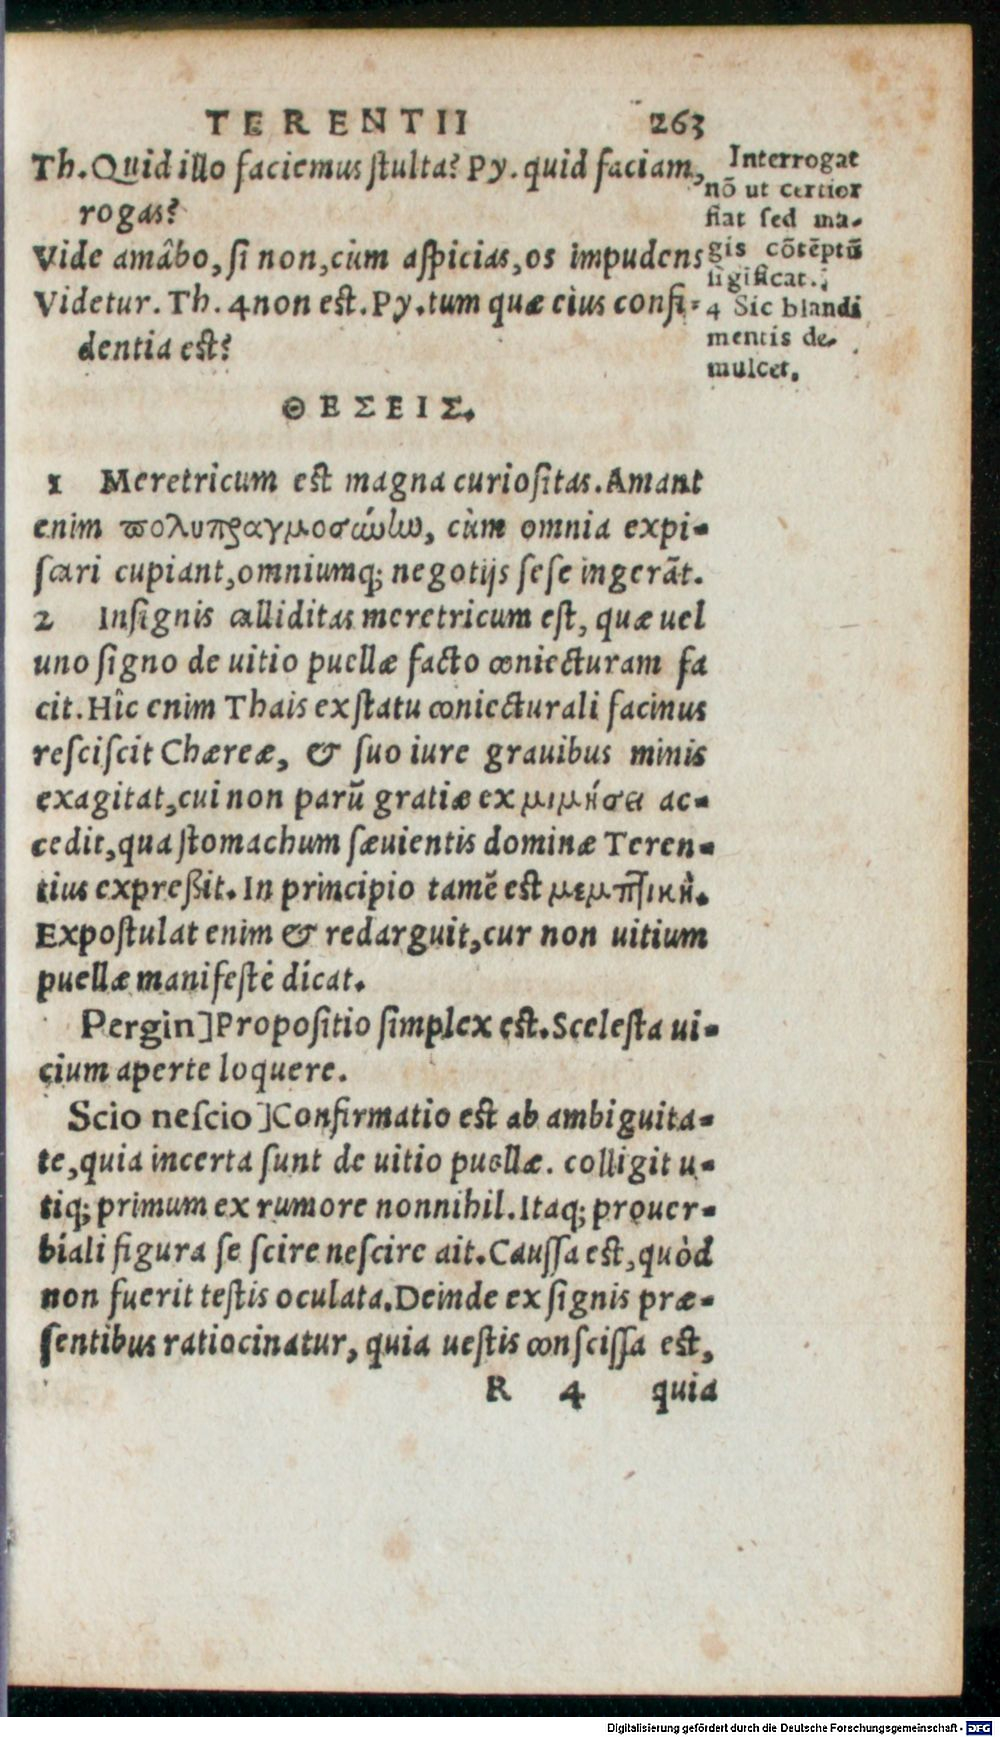 TERENTII 263
Th. Quid illo faciemus stulta? Py. quid faciam,
rogas?
Vide amâbo, si non, cùm aspicias, os impudens
Videtur. Th. 4 non est. Py. tum quæ eius confi-
dentia est?
Interrogat
nō ut certior
fiat sed ma-
gis cōtēptū
sigificat.
4 Sic blandi
mentis de-
mulcet.
ΘΕΣΕΙΣ.
1 Meretricum est magna curiositas. Amant
enim πολυπραγμοσύνην, cùm omnia expi-
scari cupiant, omniumq; negotijs sese ingerāt.
2 Insignis calliditas meretricum est, quæ uel
uno signo de uitio puellæ facto coniecturam fa
cit. Hîc enim Thais ex statu coniecturali facinus
resciscit Chæreæ, & suo iure grauibus minis
exagitat, cui non parū gratiæ ex μιμήσει ac-
cedit, qua stomachum sæuientis dominæ Teren-
tius expreßit. In principio tamē est μεμπτικὴ.
Expostulat enim & redarguit, cur non uitium
puellæ manifestè dicat.
Pergin] Propositio simplex est. Scelesta ui-
cium aperte loquere.
Scio nescio] Confirmatio est ab ambiguita-
te, quia incerta sunt de uitio puellæ. colligit u-
tiq; primum ex rumore nonnihil. Itaq; prouer-
biali figura se scire nescire ait. Caussa est, quòd
non fuerit testis oculata. Deinde ex signis præ-
sentibus ratiocinatur, quia uestis conscissa est,
R 4 quia
Digitalisierung gefördert durch die Deutsche Forschungsgemeinschaft - DFG